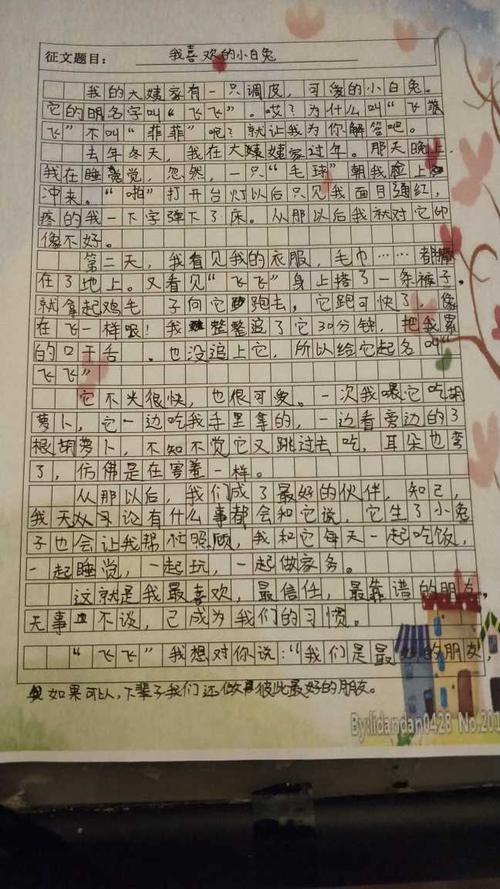 征文题目：我喜欢的小白兔
我的大姨家有一只调皮，可爱的小白兔。
它的明名字叫“飞飞”。哎？为什么叫“飞
飞”不叫“菲菲”呢？就让我为你解答吧。
去年冬天，我在大姨姨家过年。那天晚上
我在睡觉，忽然，一只“毛球”朝我脸上
冲来。“啪”打开台灯以后只见我面目通红，
疼的我一下字弹下了床。从那以后我就对它印
像不好。
第二天，我看见我的衣服，毛巾……都
在了地上。又看见“飞飞”身上搭了一条裤子。
就拿起鸡毛 子向它跑去，它跑可快了，像
在飞一样哦！我整整追了它30分钟，把我累
的口干舌 。也没追上它，所以给它起名叫“
飞飞”
它不光很快，也很可爱。一次我喂它吃胡
萝卜，它一边吃我手里拿的，一边看旁边的3
根胡萝卜，不知不觉它又跳过去吃，耳朵也弯
了，仿佛是在害羞一样。
从那以后，我们成了最好的伙伴，知己，
我天天论有什么事都会和它说，它生了小兔
子也会让我帮忙照顾，我和它每天一起吃饭，
一起睡觉，一起玩，一起做家务。
这就是我最喜欢，最信任，最靠谱的朋友，
无事不谈，已成为我们的习惯。
“飞飞”我想对你说：“我们是最好的朋友，
如果可以，下辈子我们还做彼此最好的朋友。
By:lidandan0428 No.201